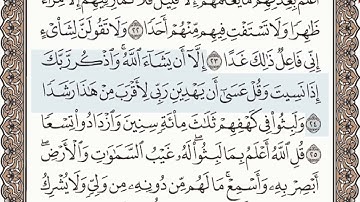 أَعْلَمُ بِعِدَّتِهِم مَّا يَعْلَمُهُمْ إِلَّا قَلِيلٌ فَلَا تُمَارِ فِيهِمْ إِلَّا مِرَآءً
ظَٰهِرًا وَلَا تَسْتَفْتِ فِيهِم مِّنْهُمْ أَحَدًا ٢٢ وَلَا تَقُولَنَّ لِشَا۟ىْءٍ
إِنِّى فَاعِلٌ ذَٰلِكَ غَدًا ٢٣ إِلَّآ أَن يَشَآءَ ٱللَّهُ ۚ وَٱذْكُر رَّبَّكَ
إِذَا نَسِيتَ وَقُلْ عَسَىٰٓ أَن يَهْدِيَنِ رَبِّى لِأَقْرَبَ مِنْ هَٰذَا رَشَدًا
٢٤ وَلَبِثُوا۟ فِى كَهْفِهِمْ ثَلَٰثَ مِا۟ئَةٍ سِنِينَ وَٱزْدَادُوا۟ تِسْعًا
٢٥ قُلِ ٱللَّهُ أَعْلَمُ بِمَا لَبِثُوا۟ ۖ لَهُۥ غَيْبُ ٱلسَّمَٰوَٰتِ وَٱلْأَرْضِ ۖ
أَبْصِرْ بِهِۦ وَأَسْمِعْ ۚ مَا لَهُم مِّن دُونِهِۦ مِن وَلِىٍّ وَلَا يُشْرِكُ